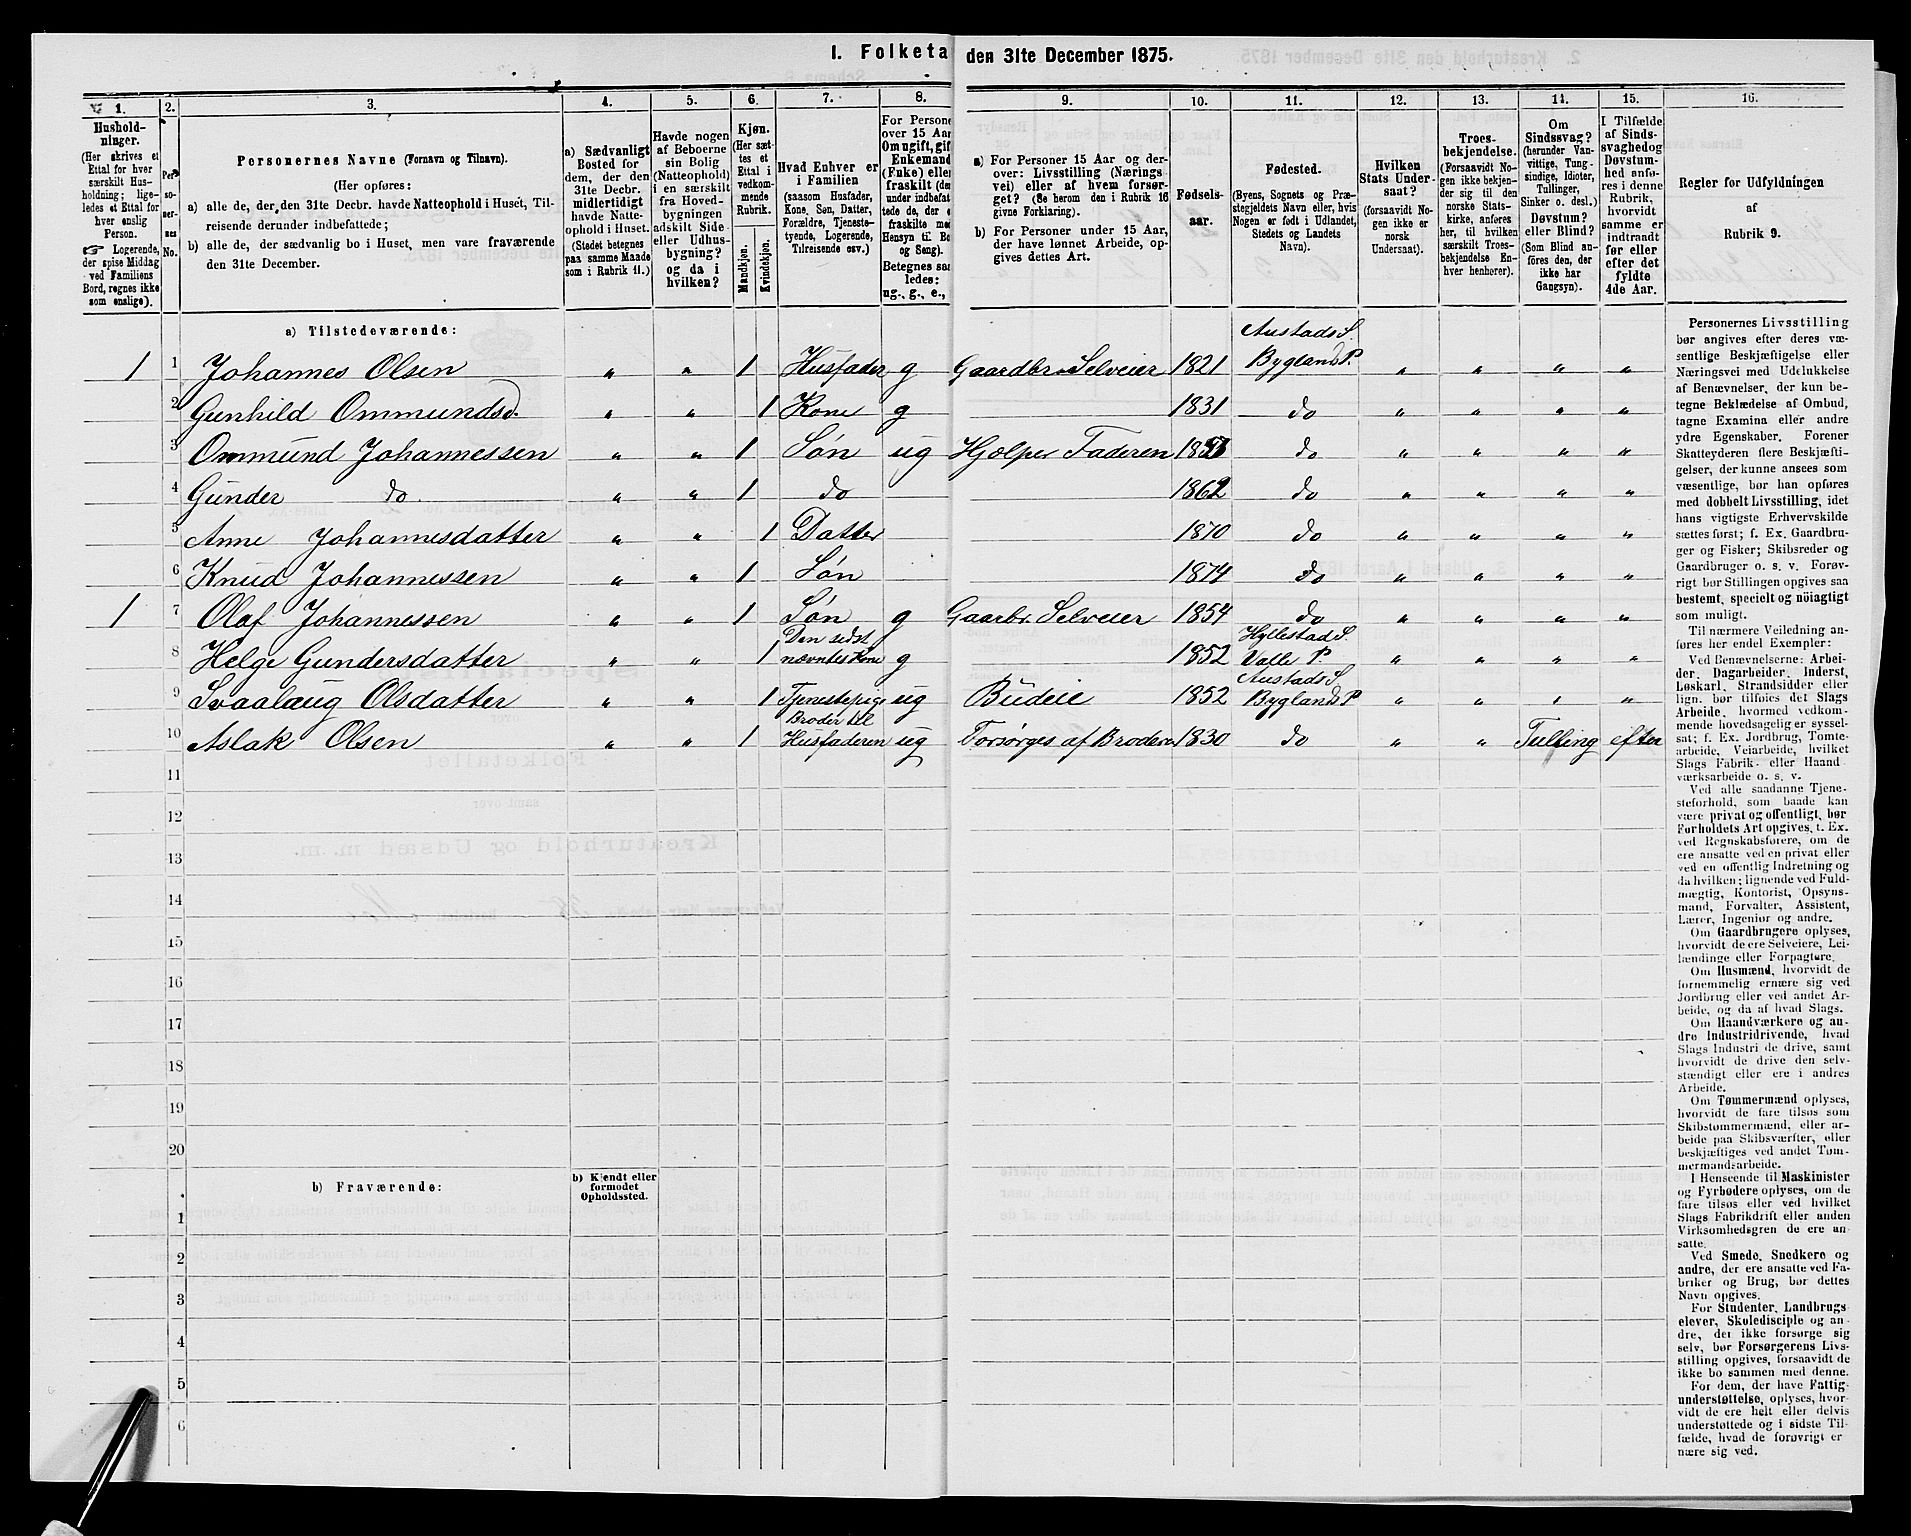 1. Folketa den 31te December 1875.
1. 2. 3. 4. 5. 6. 7. 8. 9. 10. 11. 12. 13. 14. 15. 16.
Hushold-
ninger.
(Her skrives et
Ettal for hver
særskilt Hus-
holdning; lige-
ledes et Ettal for
hver enslig
Person.
☞ Logerende,
der spise Middag
ved Familiens
Bord, regnes ikke
som enslige).
Per-
so-
ner-
nes
No.
Personernes Navne (Fornavn og Tilnavn).
(Her opføres:
a) alle de, der den 31te Decbr. havde Natteophold i Huset, Til-
reisende derunder indbefattede;
b) alle de, der sædvanlig bo i Huset, men vare fraværende
den 31te December.
a) Sædvanligt
Bosted for
dem, der den
31te Decbr.
midlertidigt
havde Natte-
ophold i Huset.
(Stedet betegnes
paa samme Maade
som i Rubrik 11.)
Havde nogen
af Beboerne
sin Bolig
(Natteophold)
i en særskilt
fra Hoved-
bygningen
adskilt Side-
eller Udhus-
bygning?
og da i
hvilken?
Kjøn.
(Her sæt-
tes et
Ettal i
vedkom-
mende
Rubrik.
Mandkjøn.
Kvindekjøn.
Hvad Enhver er
i Familien
(saasom Husfader,
Kone, Søn, Datter,
Forældre, Tjeneste-
tyende, Logerende,
Tilreisende osv.)
For Persone
over 15 Aar
Om ugift, gif
Enkemand
(Enke) elle
fraskilt (de
under indbefat-
tede de, der e
fraskilte me
Hensyn til Bo
og Seng).
Betegnes saa
ledes:
ug., g., e.,
a) For Personer 15 Aar og der-
over: Livsstilling (Nærings-
vei) eller af hvem forsør-
get? (Se herom den i Rubrik 16
givne Forklaring).
b) For Personer under 15 Aar,
der have lønnet Arbeide, op-
gives dettes Art.
Fødsels-
aar.
Fødested.
(Byens, Sognets og Præ-
stegjeldets Navn eller, hvis
Nogen er født i Udlandet,
Stedets og Landets
Navn).
Hvilken
Stats Under-
saat?
(forsaavidt No-
gen ikke er
norsk
Undersaat).
Troes-
bekjendelse.
(Forsaavidt No-
gen ikke bekjen-
der sig til den
norske Stats-
kirke, anføres
her, til hvilken
særskilt Troes-
bekjendelse En-
hver henhører).
Om
Sindssvag?
(herunder Van-
vittige, Tung-
sindige, Idioter,
Tullinger,
Sinker o. desl.)
Døvstum?
eller Blind?
(Som Blind an-
føres den, der
ikke har
Gangsyn).
I Tilfælde
af Sinds-
svaghed og
Døvstum-
hed anfø-
res i denne
Rubrik,
hvorvidt
samme er
indtraadt
før eller
efter det
fyldte
4de Aar.
Regler for Udfyldningen
af
Rubrik 9.
a) Tilstedeværende:
Austads S.
1 1 Johannes Olsen " " 1 Husfader g Gaardbr. Selveier 1821 Byglands P. " " " "
2 Gunhild Ommundsd. " " 1 Kone g 1831 do " " " "
3 Ommund Johannessen " " 1 Søn ug Hjælper Faderen do " " " "
4 Gunder do " " 1 do 1862 do " " " "
5 Anne Johannesdatter " " 1 Datter 1870 do " " " "
6 Knud Johannessen " " 1 Søn 1874 do " " " "
1 7 Olaf Johannessen " " 1 Søn g Gaarbr. Selveier 1854 do " " " "
Den sidst Hyllestad S.
8 Helge Gundersdatter " " 1 nævntes Kone g 1852 Valle P. " " " "
Austads S
9 Svaalaug Olsdatter " " 1 Tjenestepige ug Büdeie 1852 Byglands P " " " "
Broder til
10 Aslak Olsen " " 1 Husfaderen ug Forsørges af Broderen 1830 do " " Tulling efter
11
12
13
14
15
16
17
18
19
20
b) Fraværende: b) Kjendt eller
formodet
Opholdssted.
1
2
3
4
5
6
Personernes Livsstilling
bør angives efter deres væ-
sentlige Beskjæftigelse eller
Næringsvei med Udelukkelse
af Benævnelser, der kun be-
tegne Beklædelse af Ombud,
tagne Examina eller andre
ydre Egenskaber. Forener
Skatteyderen flere Beskjæfti-
gelser, der kunne ansees som
væsentlige, bør han opføres
med dobbelt Livsstilling, idet
hans vigtigste Erhvervskilde
sættes først; f. Ex. Gaardbru-
ger og Fisker; Skibsreder og
Gaardbruger o. s. v. Forøv-
rigt bør Stillingen opgives saa
bestemt, specielt og nøiagtigt
som muligt.
Til nærmere Veiledning an-
føres her endel Exempler:
Ved Benævnelserne: Arbei-
der, Dagarbeider, Inderst,
Løskarl, Strandsidder eller
lign. bør tilføies det Slags
Arbeide, hvormed vedkom-
mende hovedsagelig er syssel-
sat; f. Ex. Jordbrug, Tomte-
arbeide, Veiarbeide, hvilket
Slags Fabrik- eller Haand
værksarbeide o. s. v.
Ved alle saadanne Tjene-
steforhold, som baade kan
være privat og offentligt, bør
Forholdets Art opgives, t. Ex.
ved Regnskabsførere, om de
ere ansatte ved en privat eller
ved en offentlig Indretning og
da hvilken; lignende ved Fuld-
mægtig, Kontorist, Opsyns-
mand, Forvalter, Assistent,
Lærer, Ingeniør og andre.
Om Gaardbrugere oplyses,
hvorvidt de ere Selveiere, Lei-
lændinge eller Forpagtere.
Om Husmænd, hvorvidt de
fornemmelig ernære sig ved
Jordbrug eller ved andet Ar-
beide, og da af hvad Slags.
Om Haandværkere og an-
dre Industridrivende, hvad
Slags Industri de drive, samt
hvorvidt de drive den selv-
stændigt eller ere i andres
Arbeide.
Om Tømmermænd oplyses,
hvorvidt de fare tilsøs som
Skibstømmermænd, eller ar-
beide paa Skibsværfter, eller
beskjæftiges ved andet Tøm-
mermandsarbeide.
I Henseende til Maskinister
og Fyrbødere oplyses, om de
fare tilsøs eller ved hvilket
Slags Fabrikdrift eller anden
Virksomhedsgren de ere an-
satte.
Ved Smede, Snedkere og
andre, der ere ansatte ved Fa-
briker og Brug, bør dettes
Navn opgives.
For Studenter, Landbrugs-
elever, Skoledisciple og an-
dre, der ikke forsørge sig
selv, bør Forsørgerens Livs-
stilling opgives, forsaavidt de
ikke bo sammen med denne.
For dem, der have Fattig-
understøttelse, oplyses, hvor-
vidt de ere helt eller delvis
understøttede og i sidste Til-
fælde, hvad de forøvrigt er
nære sig ved.